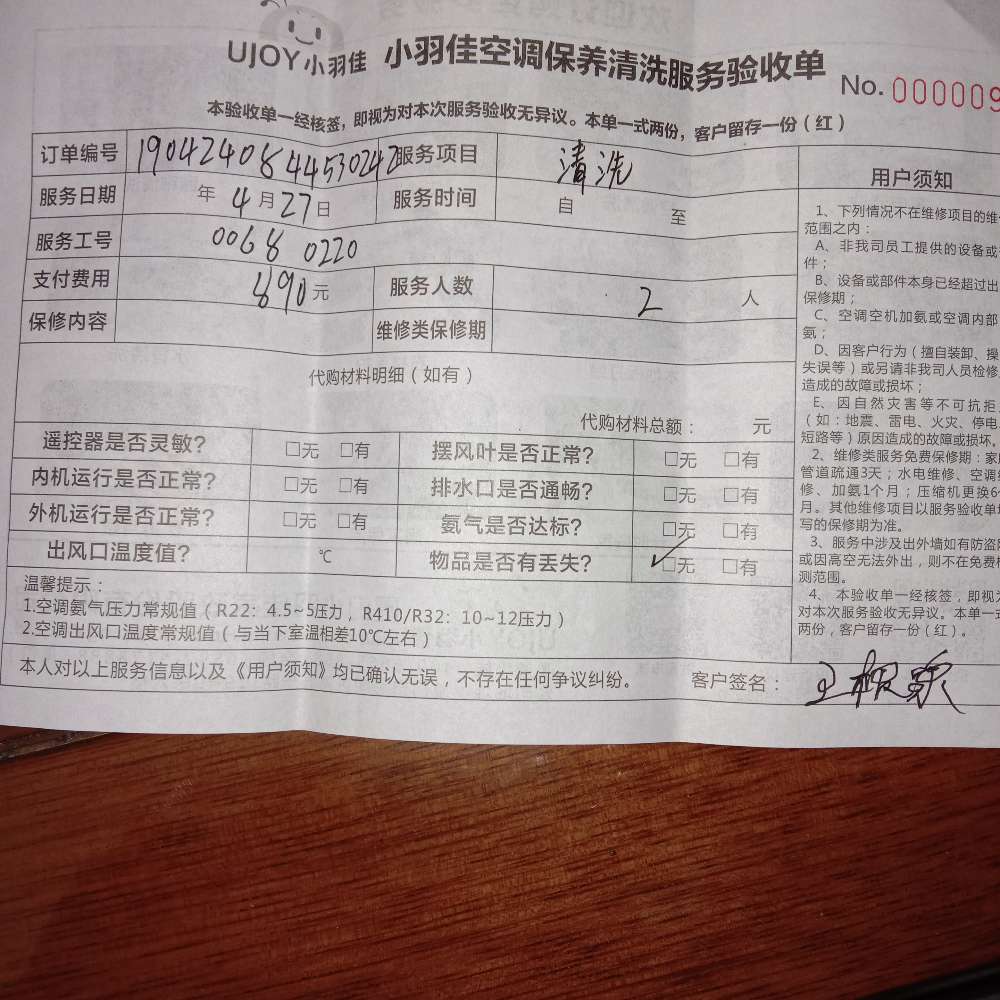 UJOY小羽佳 小羽佳空调保养清洗服务验收单 No. 000009
本验收单一经核签，即视为对本次服务验收无异议。本单一式两份，客户留存一份（红）
订单编号 1904240844530242 服务项目 清洗
服务日期 年 4 月 27 日 服务时间 自 至
服务工号 0068 0220
支付费用 890 元 服务人数 2 人
保修内容 维修类保修期
代购材料明细（如有）
代购材料总额： 元
遥控器是否灵敏？ □无 □有 摆风叶是否正常？ □无 □有
内机运行是否正常？ □无 □有 排水口是否通畅？ □无 □有
外机运行是否正常？ □无 □有 氨气是否达标？ □无 □有
出风口温度值？ ℃ 物品是否有丢失？ ✓□无 □有
温馨提示：
1.空调氨气压力常规值（R22：4.5~5压力，R410/R32：10~12压力）
2.空调出风口温度常规值（与当下室温相差10℃左右）
本人对以上服务信息以及《用户须知》均已确认无误，不存在任何争议纠纷。 客户签名：
用户须知
1、下列情况不在维修项目的维
范围之内：
A、非我司员工提供的设备或
件；
B、设备或部件本身已经超过出
保修期；
C、空调空机加氨或空调内部
氨；
D、因客户行为（擅自装卸、操
失误等）或另请非我司人员检修
造成的故障或损坏；
E、因自然灾害等不可抗拒
（如：地震、雷电、火灾、停电
短路等）原因造成的故障或损坏。
2、维修类服务免费保修期：家
管道疏通3天；水电维修、空调
修、加氨1个月；压缩机更换6
月。其他维修项目以服务验收单
写的保修期为准。
3、服务中涉及出外墙如有防盗
或因高空无法外出，则不在免费
测范围。
4、本验收单一经核签，即视为
对本次服务验收无异议。本单一式
两份，客户留存一份（红）。